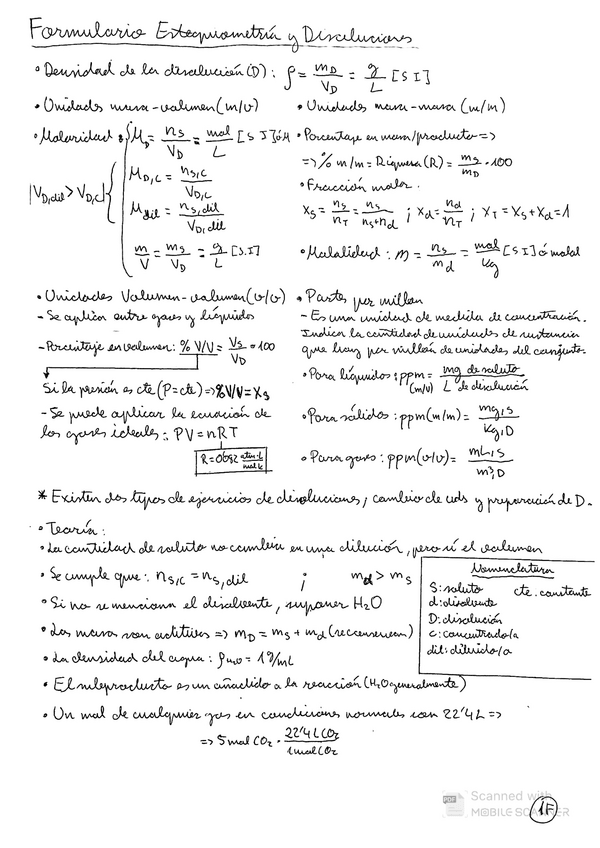 Formulario Estequiometría y Disoluciones
• Densidad de la disolución (D): ρ = m_D / V_D = g / L [SI]
• Unidades masa-volumen (m/v)
• Molaridad: M_D = n_s / V_D = mol / L [SI] ó M
|V_D,dil > V_D,c|
M_D,c = n_s,c / V_D,c
M_dil = n_s,dil / V_D,dil
m / V = m_s / V_D = g / L [S.I]
• Unidades masa-masa (m/m)
• Porcentaje en masa/producto =>
=> % m/m = Riqueza (R) = m_s / m_D · 100
• Fracción molar
X_s = n_s / n_T = n_s / n_s+n_d ; X_d = n_d / n_T ; X_T = X_s + X_d = 1
• Molalidad: m = n_s / m_d = mol / kg [SI] ó molal
• Unidades Volumen-volumen (v/v)
- Se aplica entre gases y líquidos
- Porcentaje en volumen: % V/V = V_s / V_D · 100
Si la presión es cte (P=cte) => % V/V = X_s
- Se puede aplicar la ecuación de
los gases ideales: PV = nRT
R = 0'082 atm·L / mol·k
• Partes por millón
- Es una unidad de medida de concentración.
Indica la cantidad de unidades de sustancia
que hay por millón de unidades del conjunto.
• Para líquidos: ppm (m/v) = mg de soluto / L de disolución
• Para sólidos: ppm (m/m) = mg,s / kg,D
• Para gases: ppm (v/v) = mL,s / m³,D
* Existen dos tipos de ejercicios de disoluciones, cambio de uds y preparación de D.
• Teoría:
• La cantidad de soluto no cambia en una dilución, pero sí el volumen
• Se cumple que: n_s,c = n_s,dil ; m_d > m_s
• Si no se menciona el disolvente, suponer H₂O
• Las masas son aditivas => m_D = m_s + m_d (se conservan)
• La densidad del agua: ρ_H₂O = 1 g/mL
• El subproducto es un añadido a la reacción (H₂O generalmente)
• Un mol de cualquier gas en condiciones normales son 22'4 L =>
=> 5 mol CO₂ · 22'4 L CO₂ / 1 mol CO₂
Nomenclatura
S: soluto cte: constante
d: disolvente
D: disolución
c: concentrado/a
dil: diluido/a
PDF Scanned with
MOBILE SCANNER
1F